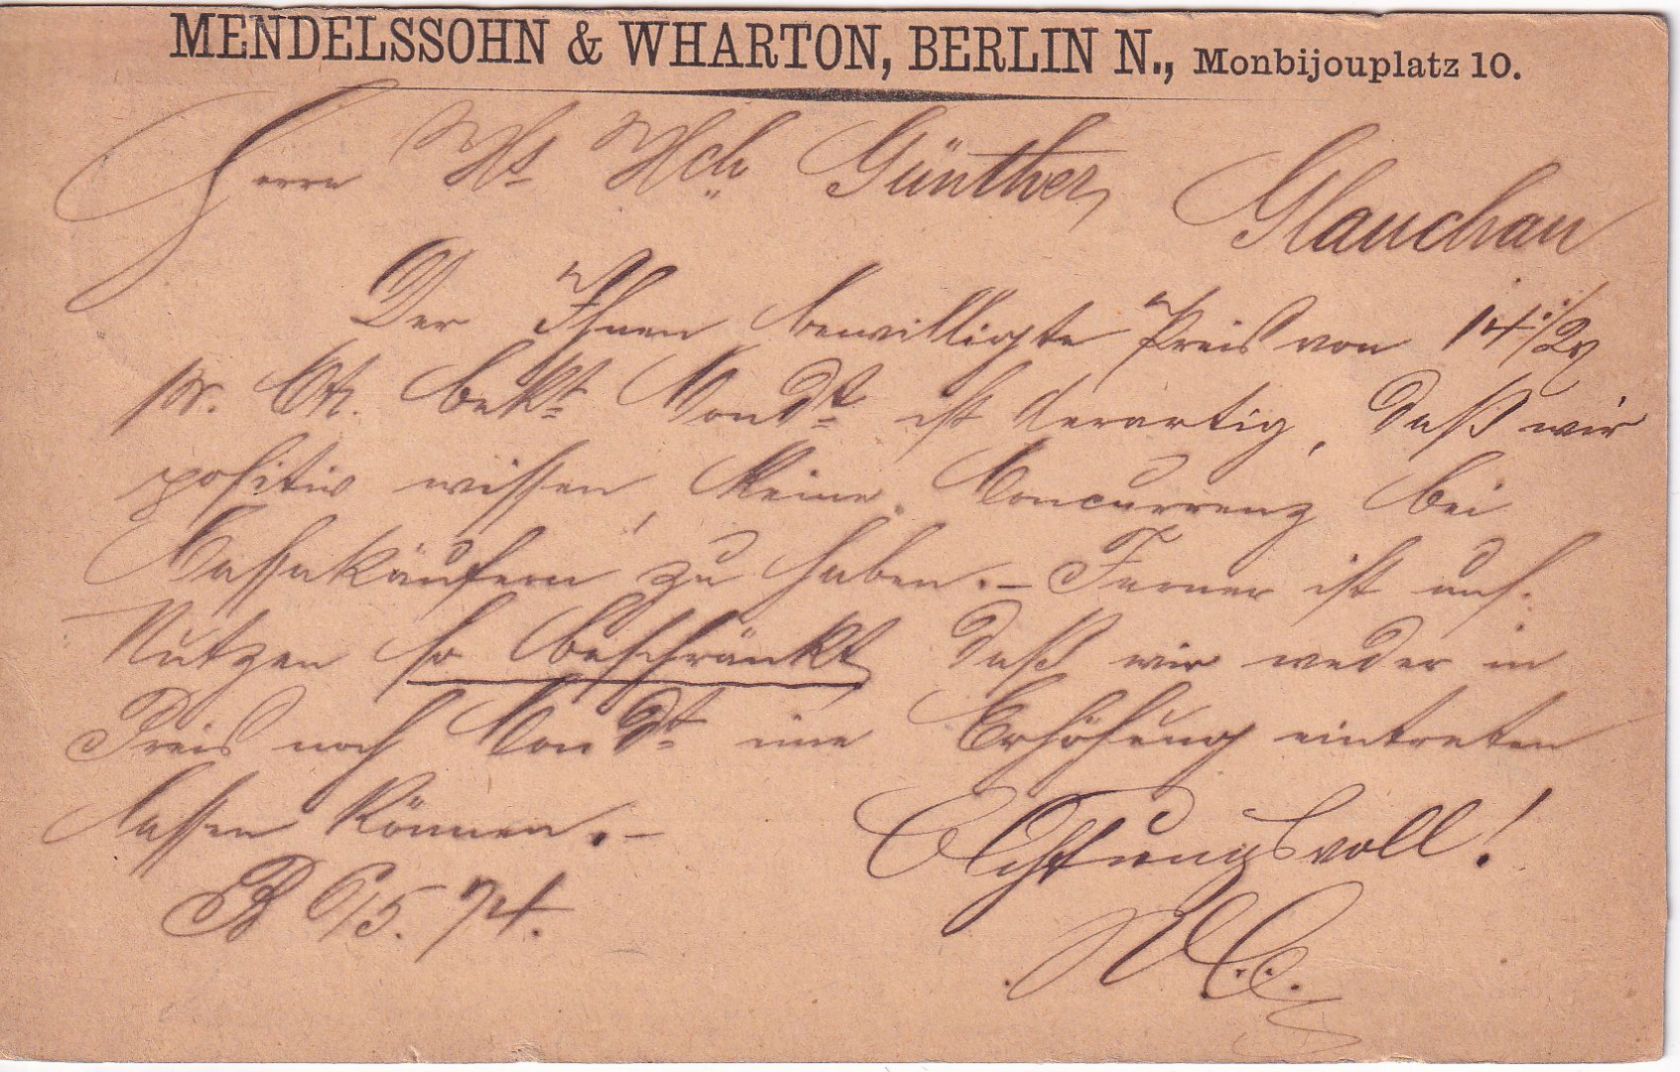 MENDELSSOHN & WHARTON, BERLIN N., Monbijouplatz 10.
Herrn Wr. Hch. Günther, Glauchau
Der Ihnen bewilligte Preis von 14 1/2
pr. bekt. Condt. ist derartig, daß wir
positiv wissen, keine Concurrenz bei
Cassakäufern zu haben.- Ferner ist uns.
Nutzen so beschränkt daß wir weder in
Preis noch Condt. eine Erhöhung eintreten
lassen können.-
Achtungsvoll!
B 6/5. 74.